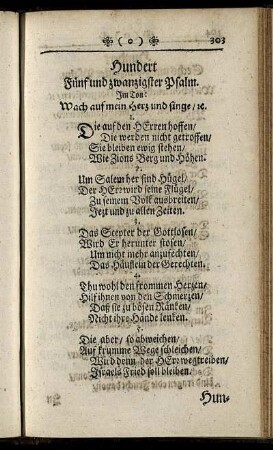 ( o ) 303
Hundert
Fünf und zwanzigster Psalm.
Im Ton:
Wach auf mein Herz und singe/ ꝛc.
1.
Die auf den HErren hoffen/
Die werden nicht getroffen/
Sie bleiben ewig stehen/
Wie Zions Berg und Höhen.
2.
Um Salem her sind Hügel/
Der HErr wird seine Flügel/
Zu seinem Volk ausbreiten/
Jezt und zu allen Zeiten.
3.
Das Scepter der Gottlosen/
Wird Er herunter stosen/
Um nicht mehr anzufechten/
Das Häuflein der Gerechten.
4.
Thu wohl den frommen Herzen/
Hilf ihnen von den Schmerzen/
Daß sie zu bösen Ränken/
Nicht ihre Hände lenken.
5.
Die aber/ so abweichen/
Auf krumme Wege schleichen/
Wird denn der HErr wegtreiben/
Israels Fried soll bleiben.
Hun-